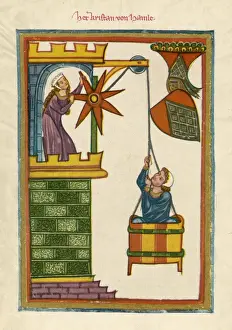 Her Kristan von Hamle.